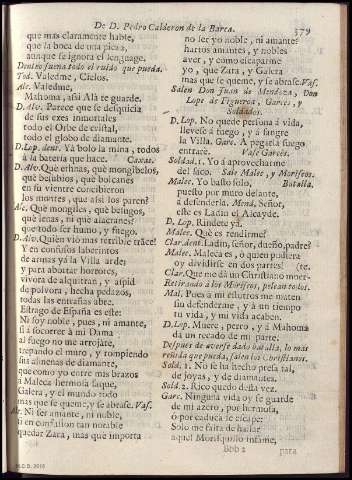 De D. Pedro Calderon de la Barca.
379
que mas claramente hable,
que la boca de una pieza,
aunque se ignora el lenguage.
Dentro suena todo el ruido que pueda.
Tod. Valedme, Cielos.
Alc. Valedme,
Mahoma, assi Alà te guarde.
D. Alv. Parece que se desquicia
de sus exes inmortales
todo el Orbe de cristal,
todo el globo de diamante.
D. Lop. dent. Yà bolò la mina, todos
à la bateria que hace. Caxas.
D. Alv. Què ethnas, què mongibelos,
què bolcanes
en su vientre concibieron
los montes, que assi los paren?
Alc. Què mongiles, què besugos,
què ienas, ni què alacranes?
que todo ser humo, y fuego.
D. Alv. Quièn viò mas terrible trance!
Y en confusos laberintos
de armas yà la Villa arde;
y para abortar horrores,
vivora de alquitran, y aspid
de polvora, hecha pedazos,
todas las entrañas abre.
Estrago de España es este:
Ni soy noble, pues, ni amante,
si à socorrer à mi Dama
al fuego no me arrojàre,
trepando el muro, y rompiendo
sus almenas de diamante,
que como yo entre mis brazos
à Maleca hermosa saque,
Galera, y el mundo todo
mas que se queme, y se abrase. Vas.
Alc. Ni ser amante, ni noble,
si en confusion tan notable
quedàr Zara, mas que importa
no ser yo noble, ni amante?
hartos amantes, y nobles
aver, y como escaparme
yo, que Zara, y Galera
mas que se queme, y se abrase. Vas.
Salen Don Juan de Mendoza, Don
Lope de Figueroa, Garcès, y
Soldados.
D. Lop. No quede persona à vida,
llevese à fuego, y à sangre
la Villa. Garc. A pegarla fuego
entrarè. Vase Garcès.
Soldad. 1. Yo à aprovecharme
del saco. Sale Malec, y Moriscos.
Malec. Yo basto solo, Batalla.
puesto por muro delante,
à defenderla. Mend. Señor,
este es Ladin el Alcayde.
D. Lop. Rindete yà.
Malec. Què es rendirme?
Clar. dent. Ladin, señor, dueño, padre?
Malec. Maleca es, ò quien pudiera
oy dividirse en dos partes! (te.
Clar. Que me dà un Christiano muer-
Retirando à los Moriscos, pelean todos.
Mal. Pues à mi estotros me maten
su defendeme, y à un tiempo
tu vida, y mi vida acaben.
D. Lop. Muere, perro, y à Mahoma
dà un recado de mi parte.
Despues de averse dado batalla, lo mas
reñida que pueda, salen los Christianos.
Sold. 1. No se ha hecho presa tal,
de joyas, y de diamantes.
Sold. 2. Rico quedo desta vez.
Garc. Ninguna vida oy se guarde
de mi azero, por hermosa,
ò por caduca le escape:
Solo me falta de hallar
aquel Morisquillo infame,
Bbb 2
para